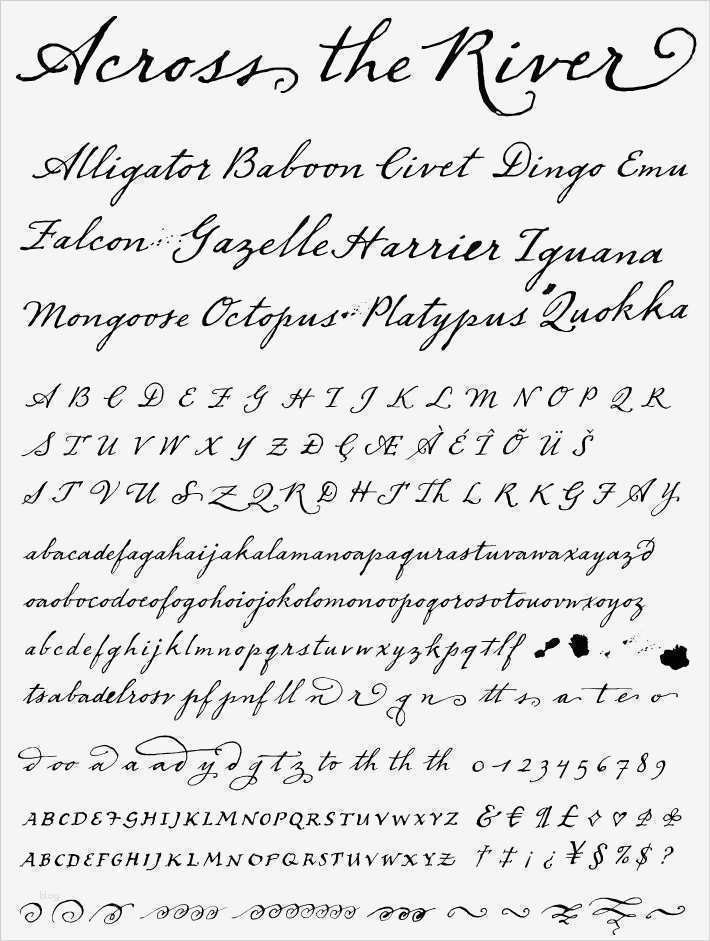 Across the River
Alligator Baboon Civet Dingo Emu
Falcon Gazelle Harrier Iguana
Mongoose Octopus Platypus Quokka
A B C D E F G H I J K L M N O P Q R
S T U V W X Y Z Đ Ç Æ À É Î Õ Ü Š
S T V U S Z Q R D H T Th L R K G F A Y
abacadefagahaijakalamanoapaqurastuvawaxayazd
oaobocodoeofogohoiojokolomonooopoqorosotouovwxoyoz
abcdefghijklmnopqrstuvwxyzkpqtlf
tsabadelrosv pf pnf ll n r q n tt s a t e o
d oo a a ad y d g t z to th th th 0 1 2 3 4 5 6 7 8 9
ABCDEFGHIJKLMNOPQRSTUVWXYZ & € ¶ £
ABCDEFGHIJKLMNOPQRSTUVWXYZ † ‡ ¡ ¿ ¥ § % $ ?
blog